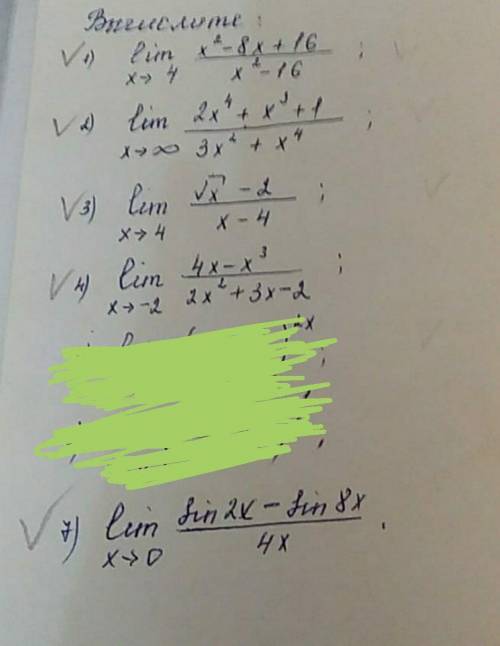 Вычислите:
1) lim x→4 (x² - 8x + 16)/(x² - 16) ;
2) lim x→∞ (2x⁴ + x³ + 1)/(3x² + x⁴) ;
3) lim x→4 (√x - 2)/(x - 4) ;
4) lim x→-2 (4x - x³)/(2x² + 3x - 2) ;
7) lim x→0 (sin 2x - sin 8x)/(4x) .